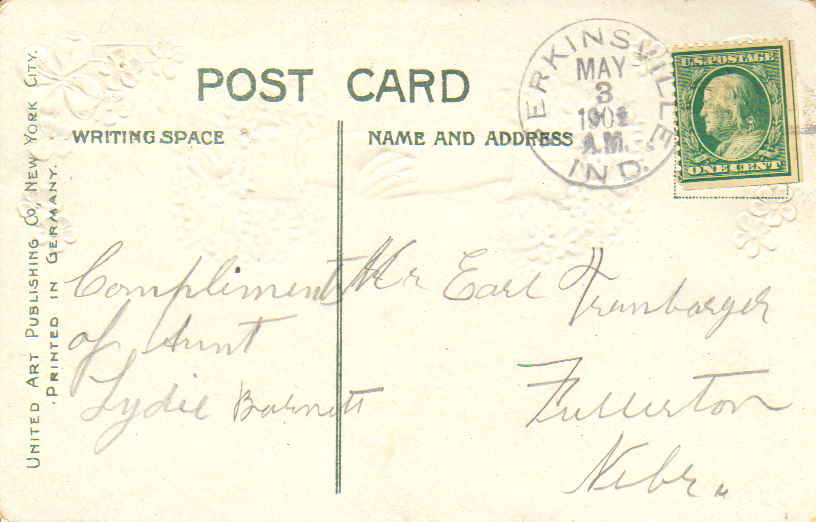 POST CARD
WRITING SPACE
NAME AND ADDRESS
UNITED ART PUBLISHING CO, NEW YORK CITY.
PRINTED IN GERMANY.
ERKINSVILLE
MAY
3
A.M.
IND.
U.S. POSTAGE
ONE CENT
Compliments
of Aunt
Lydie Barnett
Mr Earl Trunbarger
Fullerton
Nebr